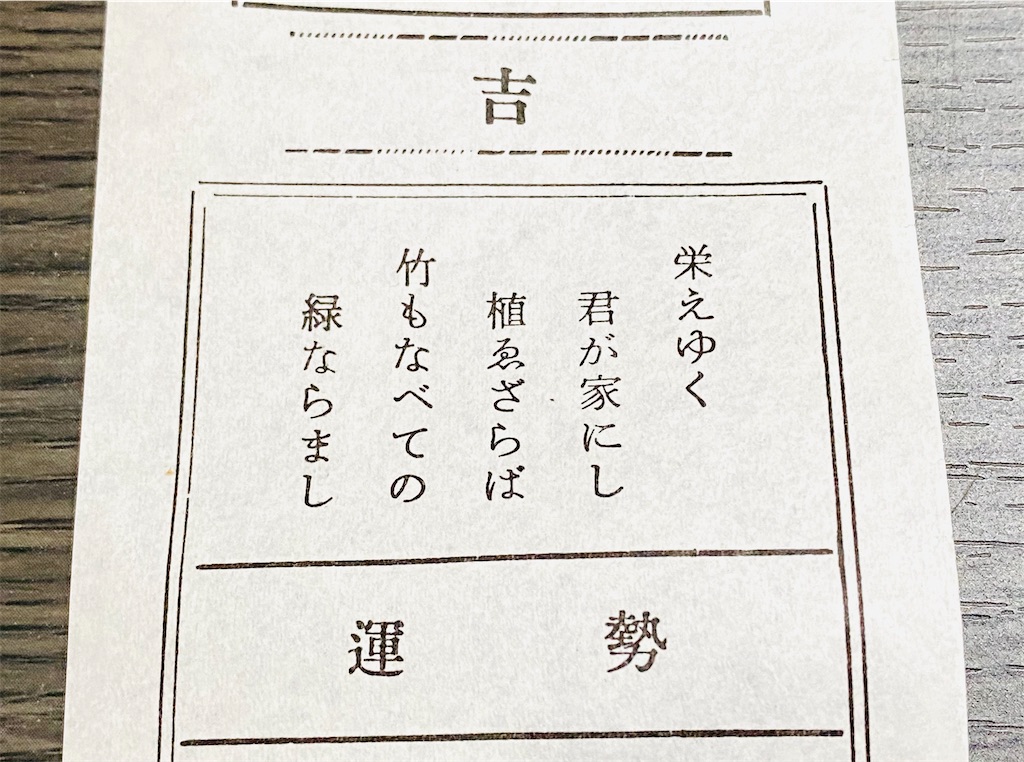 吉
栄えゆく
君が家にし
植ゑざらば
竹もなべての
緑ならまし
運勢